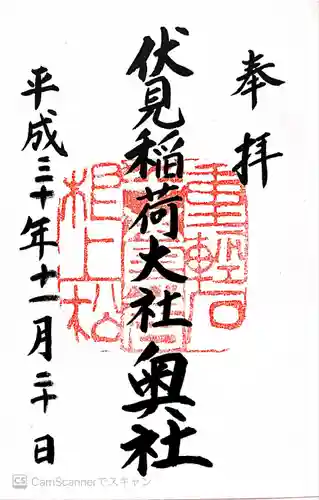 奉拝
伏見稲荷大社奥社
平成三十年十一月二十日
CS CamScannerでスキャン